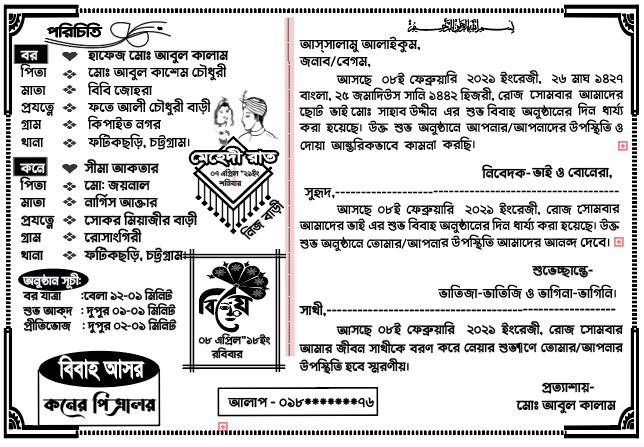 পরিচিতি
বর হাফেজ মোঃ আবুল কালাম
পিতা মোঃ আবুল কাশেম চৌধুরী
মাতা বিবি জোহরা
প্রযত্নে ফতে আলী চৌধুরী বাড়ী
গ্রাম কিপাইত নগর
থানা ফটিকছড়ি, চট্টগ্রাম।
কনে সীমা আকতার
পিতা মো: জয়নাল
মাতা নার্গিস আক্তার
প্রযত্নে সোকর মিয়াজীর বাড়ী
গ্রাম রোসাংগিরী
থানা ফটিকছড়ি, চট্টগ্রাম।
অনুষ্ঠান সূচী:
বর যাত্রা :বেলা ১২-০১ মিনিট
শুভ আকদ : দুপুর ০১-০১ মিনিট
প্রীতিভোজ : দুপুর ০২-০১ মিনিট
বিবাহ আসর
কনের পিত্রালয়
মেহেদী রাত
০৭ এপ্রিল"২১ইং
শনিবার
নিজ বাড়ী
০৮ এপ্রিল"১৮ইং
রবিবার
আস্সালামু আলাইকুম,
জনাব/বেগম,
আসছে ০৮ই ফেব্রুয়ারি ২০২১ ইংরেজী, ২৬ মাঘ ১৪২৭
বাংলা, ২৫ জমাদিউস সানি ১৪৪২ হিজরী, রোজ সোমবার আমাদের
ছোট ভাই মোঃ সাহাব উদ্দীন এর শুভ বিবাহ অনুষ্ঠানের দিন ধার্য্য
করা হয়েছে। উক্ত শুভ অনুষ্ঠানে আপনার/আপনাদের উপস্থিতি ও
দোয়া আন্তরিকভাবে কামনা করছি।
নিবেদক-ভাই ও বোনেরা,
সুহৃদ,
আসছে ০৮ই ফেব্রুয়ারি ২০২১ ইংরেজী, রোজ সোমবার
আমাদের ভাই এর শুভ বিবাহ অনুষ্ঠানের দিন ধার্য্য করা হয়েছে। উক্ত
শুভ অনুষ্ঠানে তোমার/আপনার উপস্থিতি আমাদের আনন্দ দেবে।
শুভেচ্ছান্তে-
ভাতিজা-ভাতিজি ও ভাগিনা-ভাগিনি।
সাথী,
আসছে ০৮ই ফেব্রুয়ারি ২০২১ ইংরেজী, রোজ সোমবার
আমার জীবন সাথীকে বরণ করে নেয়ার শুভ তোমার/আপনার
উপস্থিতি হবে স্মরণীয়।
প্রত্যাশায়-
মোঃ আবুল কালাম
আলাপ - ০১৮*******৭৬